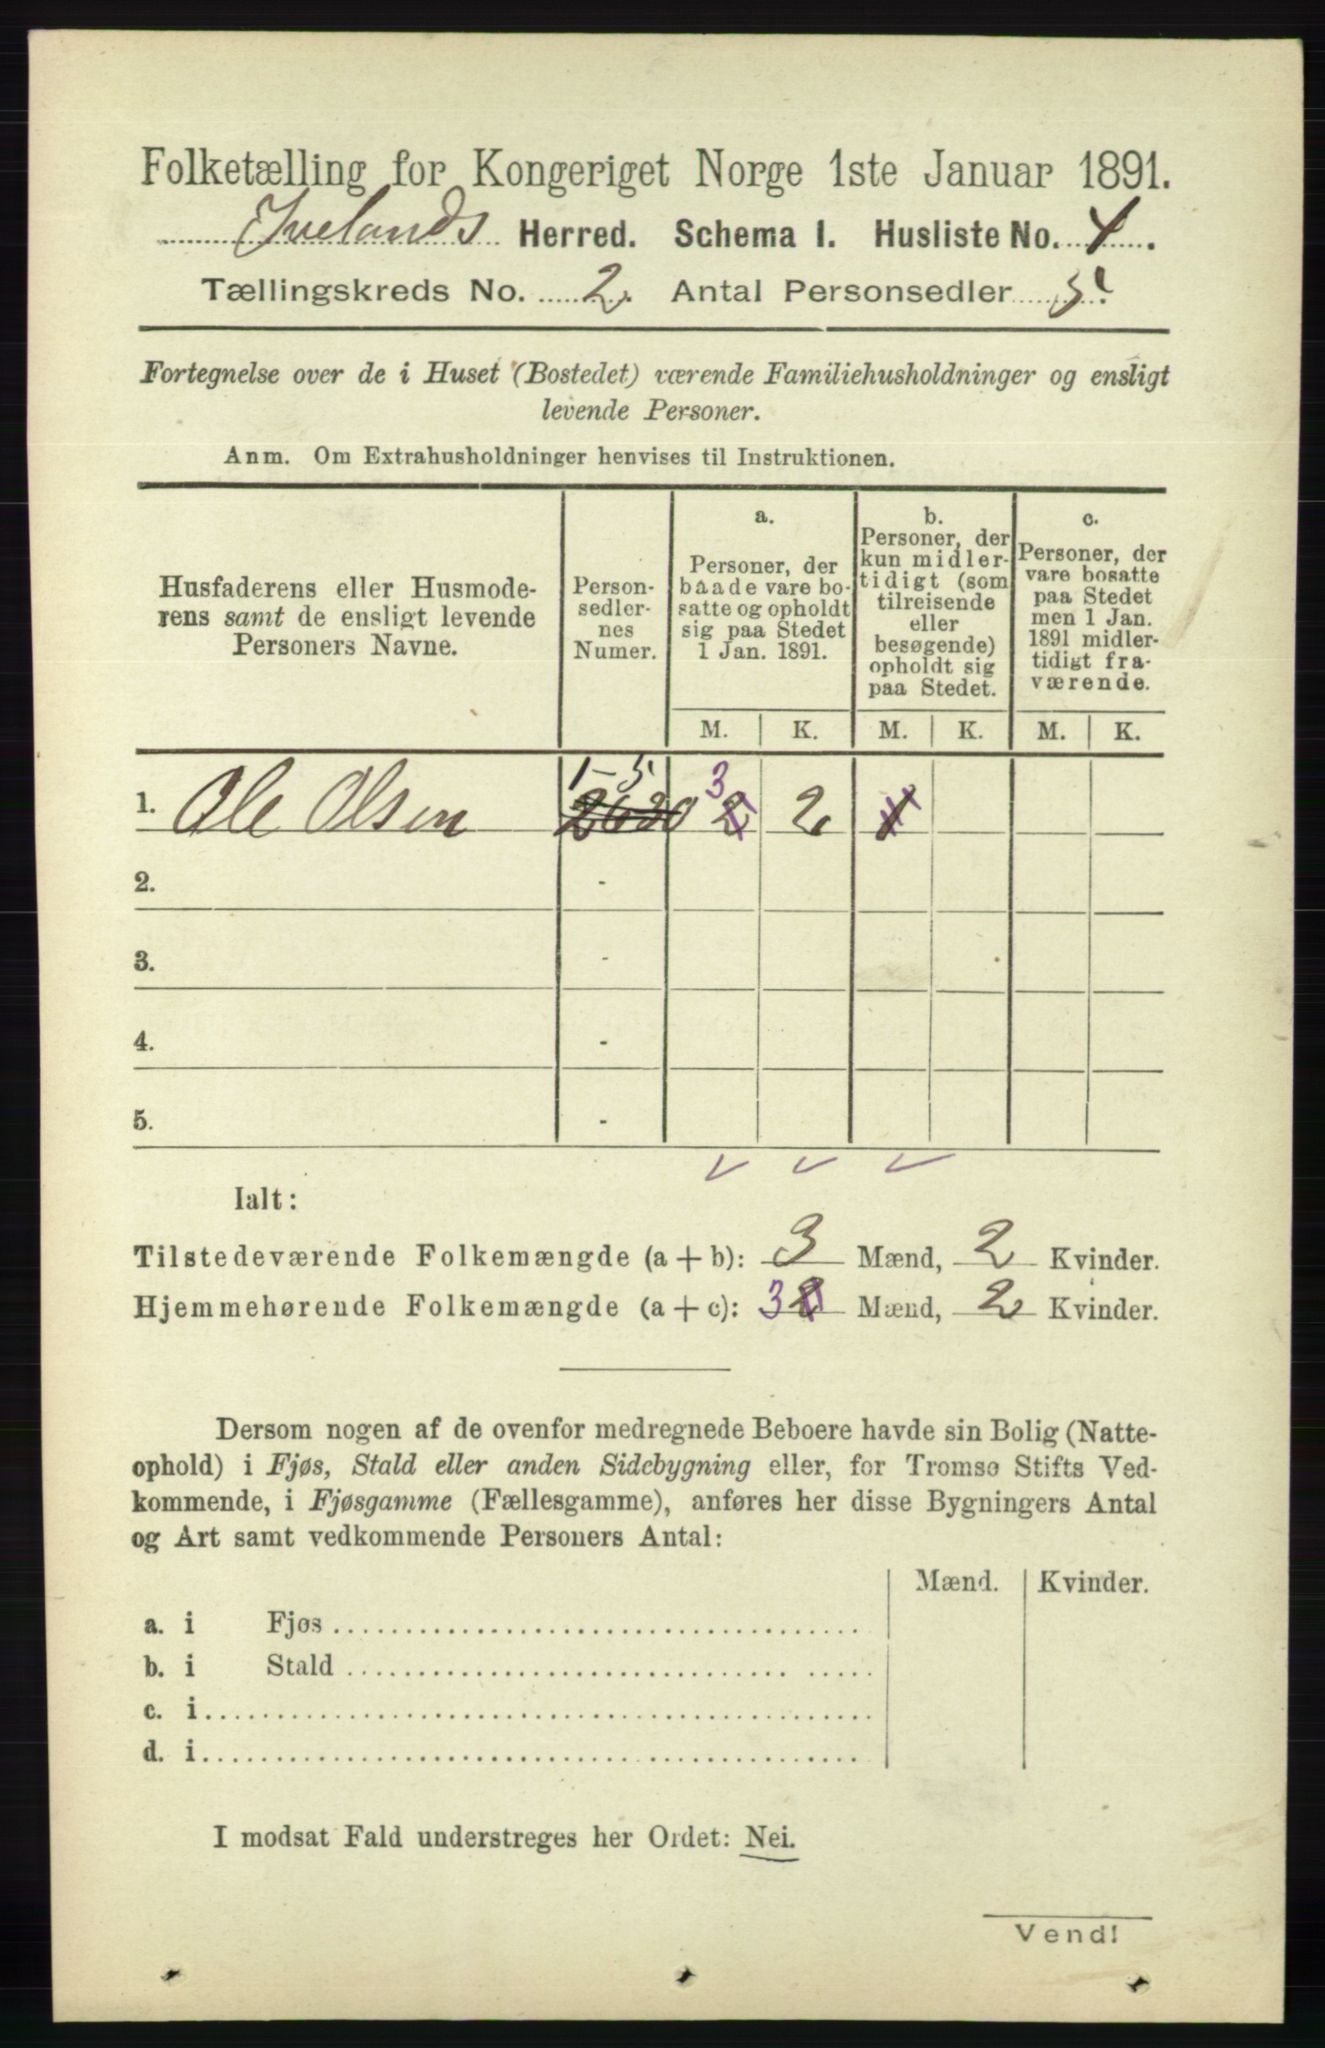 Folketælling for Kongeriget Norge 1ste Januar 1891.
Ivelands Herred. Schema 1. Husliste No. 4.
Tællingskreds No. 2. Antal Personsedler 5.
Fortegnelse over de i Huset (Bostedet) værende Familiehusholdninger og ensligt
levende Personer.
Anm. Om Extrahusholdninger henvises til Instruktionen.
Husfaderens eller Husmode-
rens samt de ensligt levende
Personers Navne.
Person-
sedler-
nes
Numer.
a.
Personer, der
baade vare bo-
satte og opholdt
sig paa Stedet
1 Jan. 1891.
b.
Personer, der
kun midler-
tidigt (som
tilreisende
eller
besøgende)
opholdt sig
paa Stedet.
c.
Personer, der
vare bosatte
paa Stedet
men 1 Jan.
1891 midler-
tidigt fra-
værende.
M. K. M. K. M. K.
1-5 3
1. Ole Olsen 2630 2 2 1
2. -
3. -
4. -
5. -
Ialt:
Tilstedeværende Folkemængde (a + b): 3 Mænd, 2 Kvinder.
Hjemmehørende Folkemængde (a + c): 3 2 Mænd, 2 Kvinder.
Dersom nogen af de ovenfor medregnede Beboere havde sin Bolig (Natte-
ophold) i Fjøs, Stald eller anden Sidebygning eller, for Tromsø Stifts Ved-
kommende, i Fjøsgamme (Fællesgamme), anføres her disse Bygningers Antal
og Art samt vedkommende Personers Antal:
Mænd. Kvinder.
a. i Fjøs
b. i Stald
c. i
d. i
I modsat Fald understreges her Ordet: Nei.
Vend!